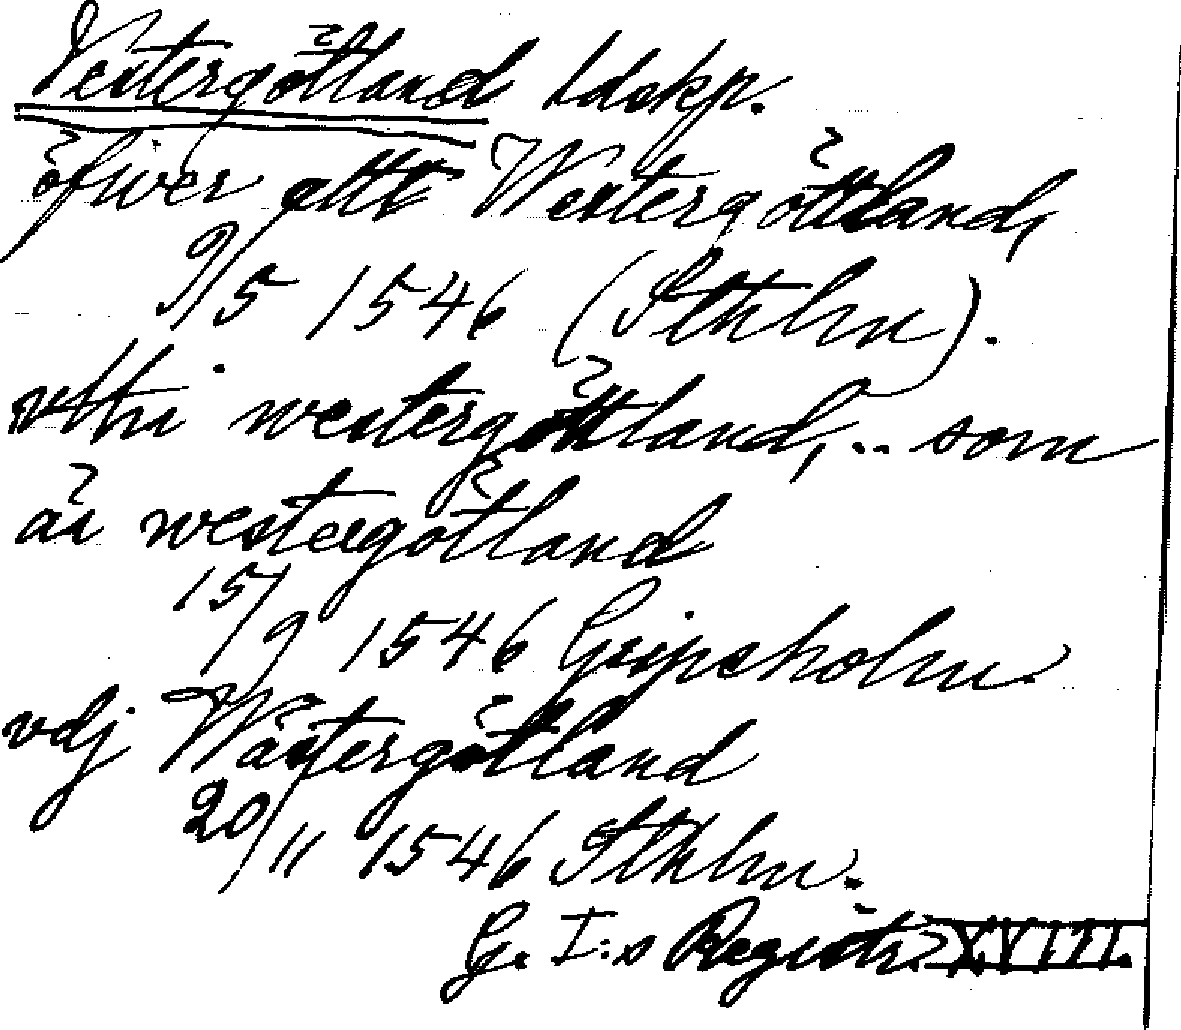 Västergötland ldskp.
öfwer altt Westergöttland,
9/5 1546 (Sthlm).
vtthi westergöttland, .. som
är westergötland
15/9 1546 Gripsholm.
vdj Wästergötland
20/11 1546 Sthlm.
G. I:s Registr. XVIII.